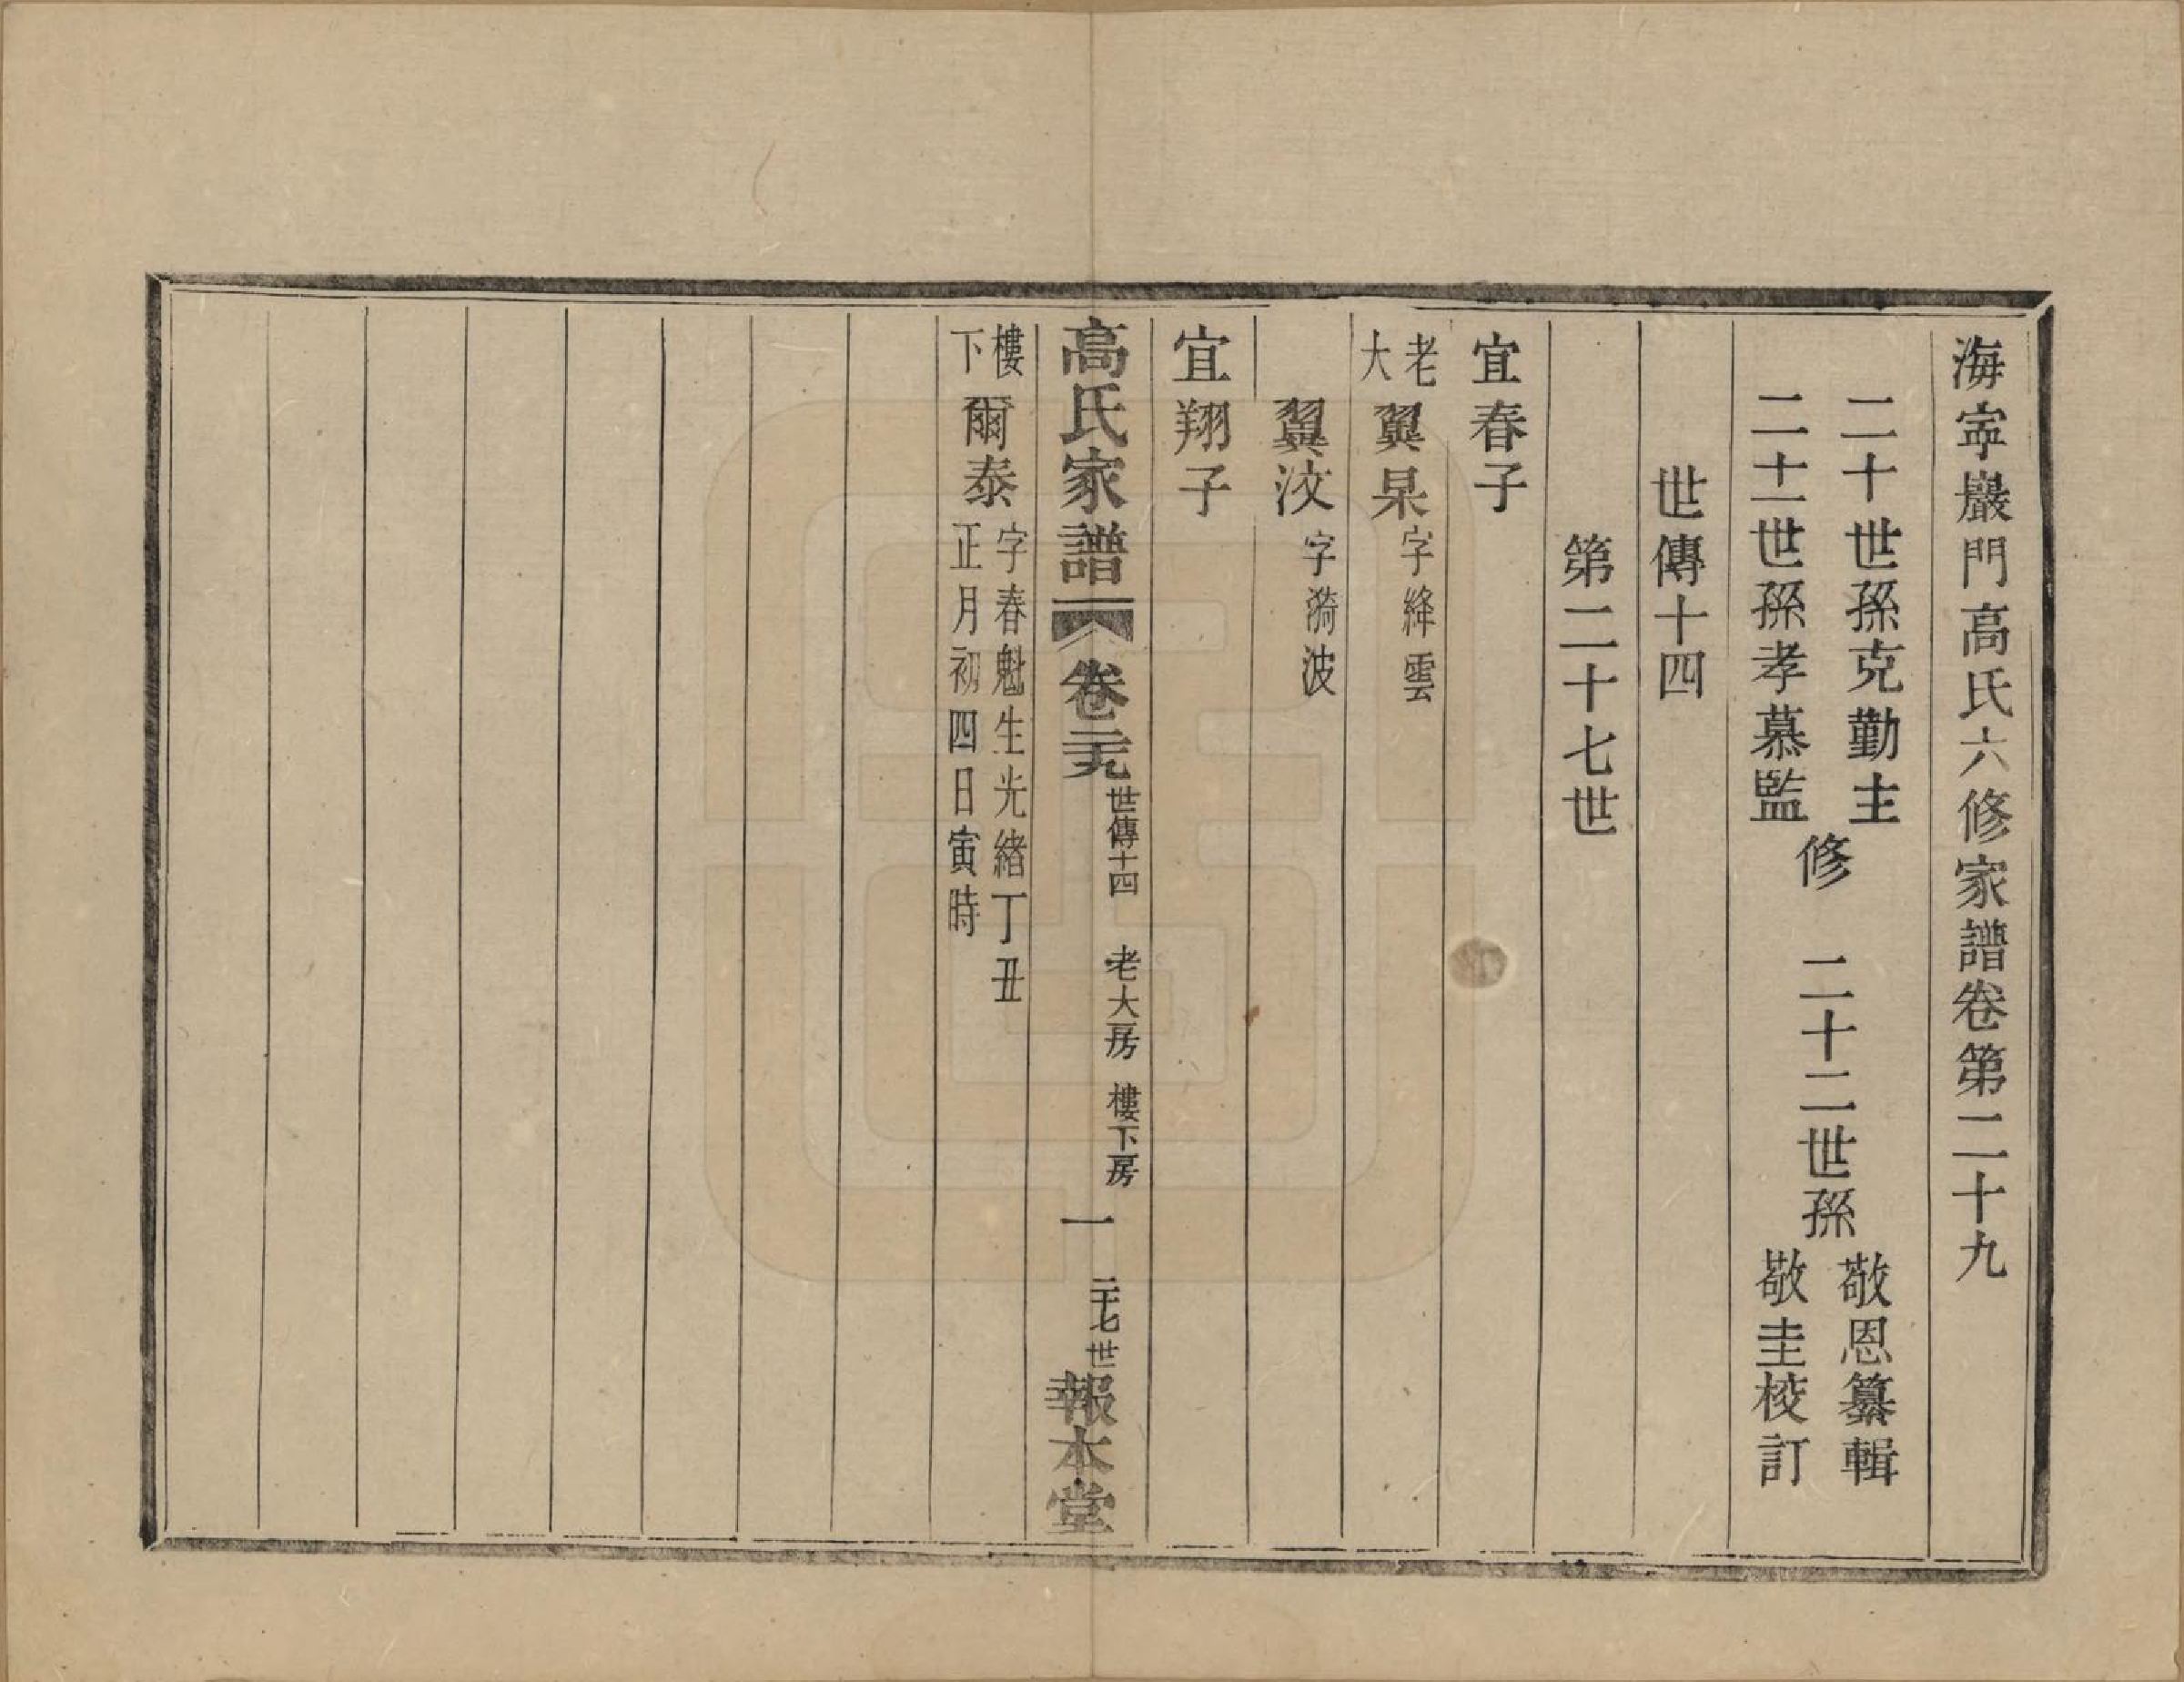 海寕巖門高氏六修家譜卷第二十九
二十世孫克勤主
二十一世孫孝慕監
修
二十二世孫
敬恩纂輯
敬圭校訂
世傳十四
第二十七世
宜春子
老大
翼杲字絳雲
翼汶字漪波
宜翔子
高氏家譜
卷二十九
世傳十四
老大房
樓下房
一
二十七世
報本堂
樓下
爾泰
字春魁生光緒丁丑
正月初四日寅時